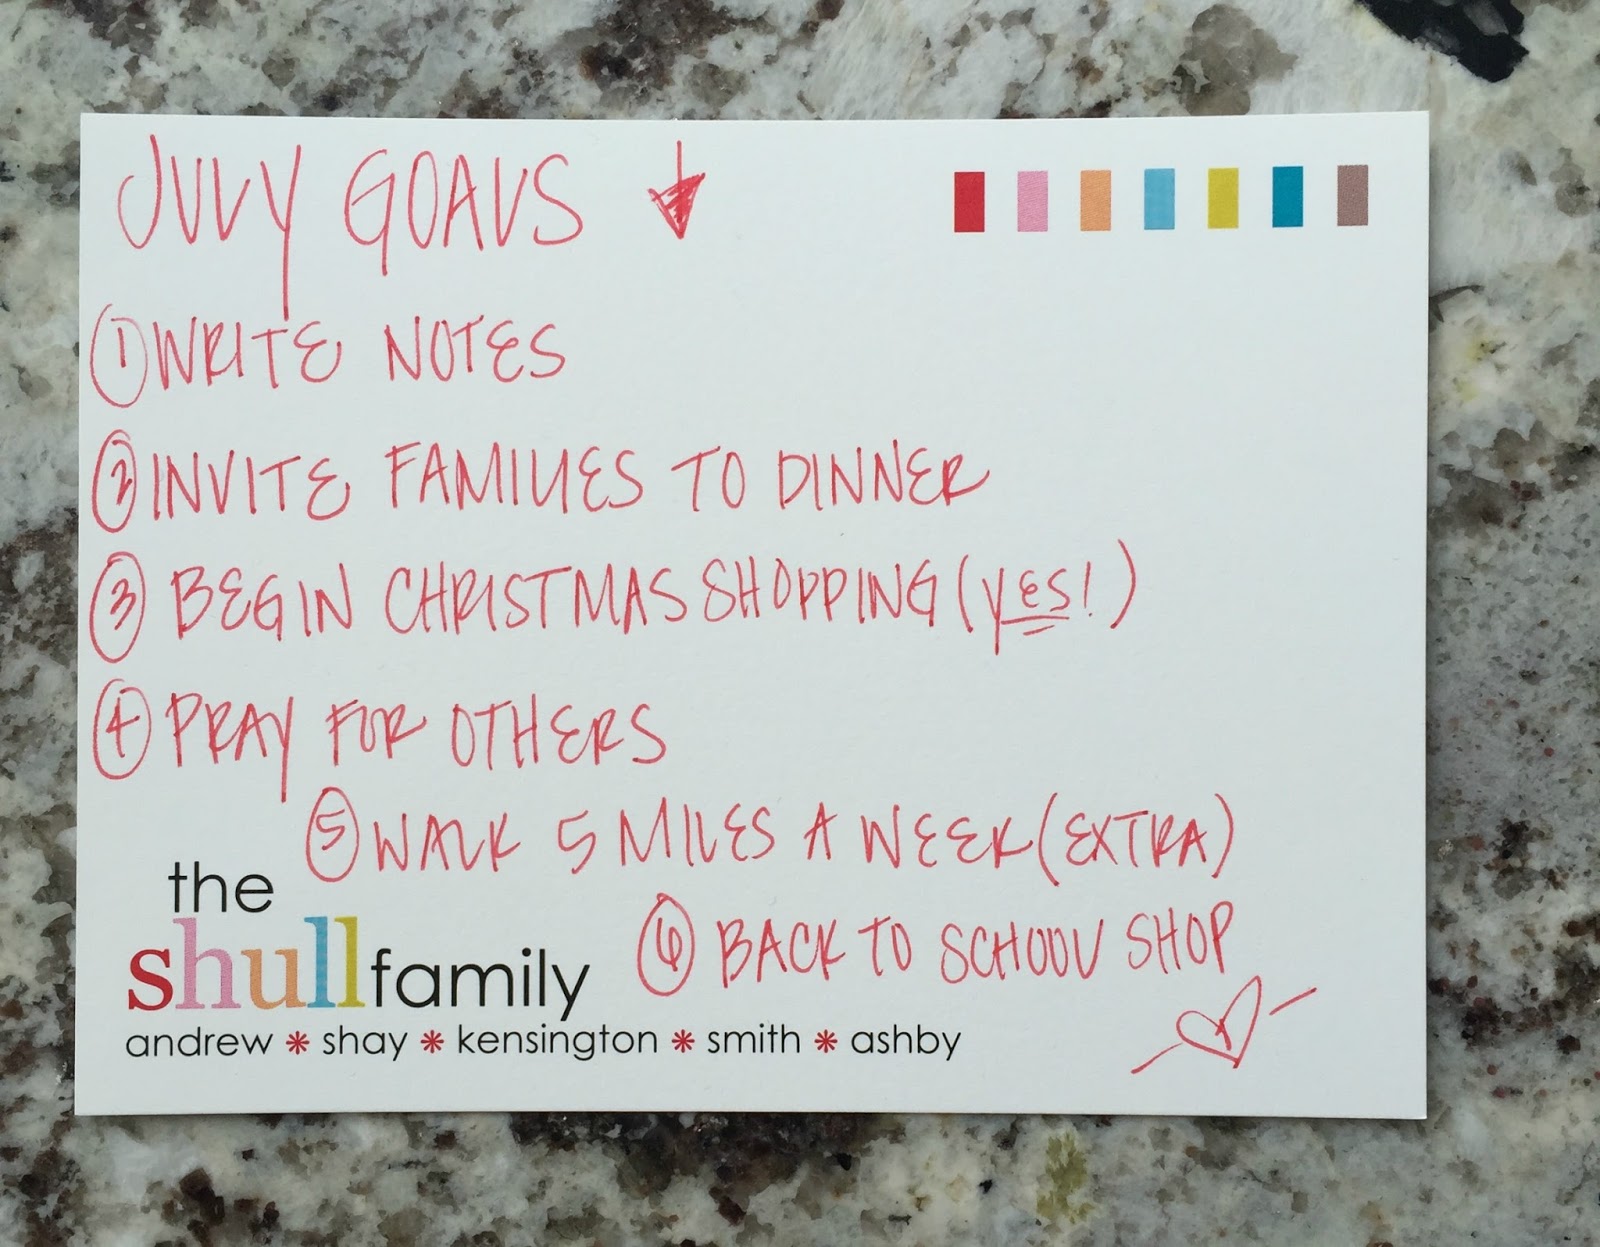 JULY GOALS
① WRITE NOTES
② INVITE FAMILIES TO DINNER
③ BEGIN CHRISTMAS SHOPPING (yes!)
④ PRAY FOR OTHERS
⑤ WALK 5 MILES A WEEK (EXTRA)
⑥ BACK TO SCHOOL SHOP
the
shull family
andrew * shay * kensington * smith * ashby